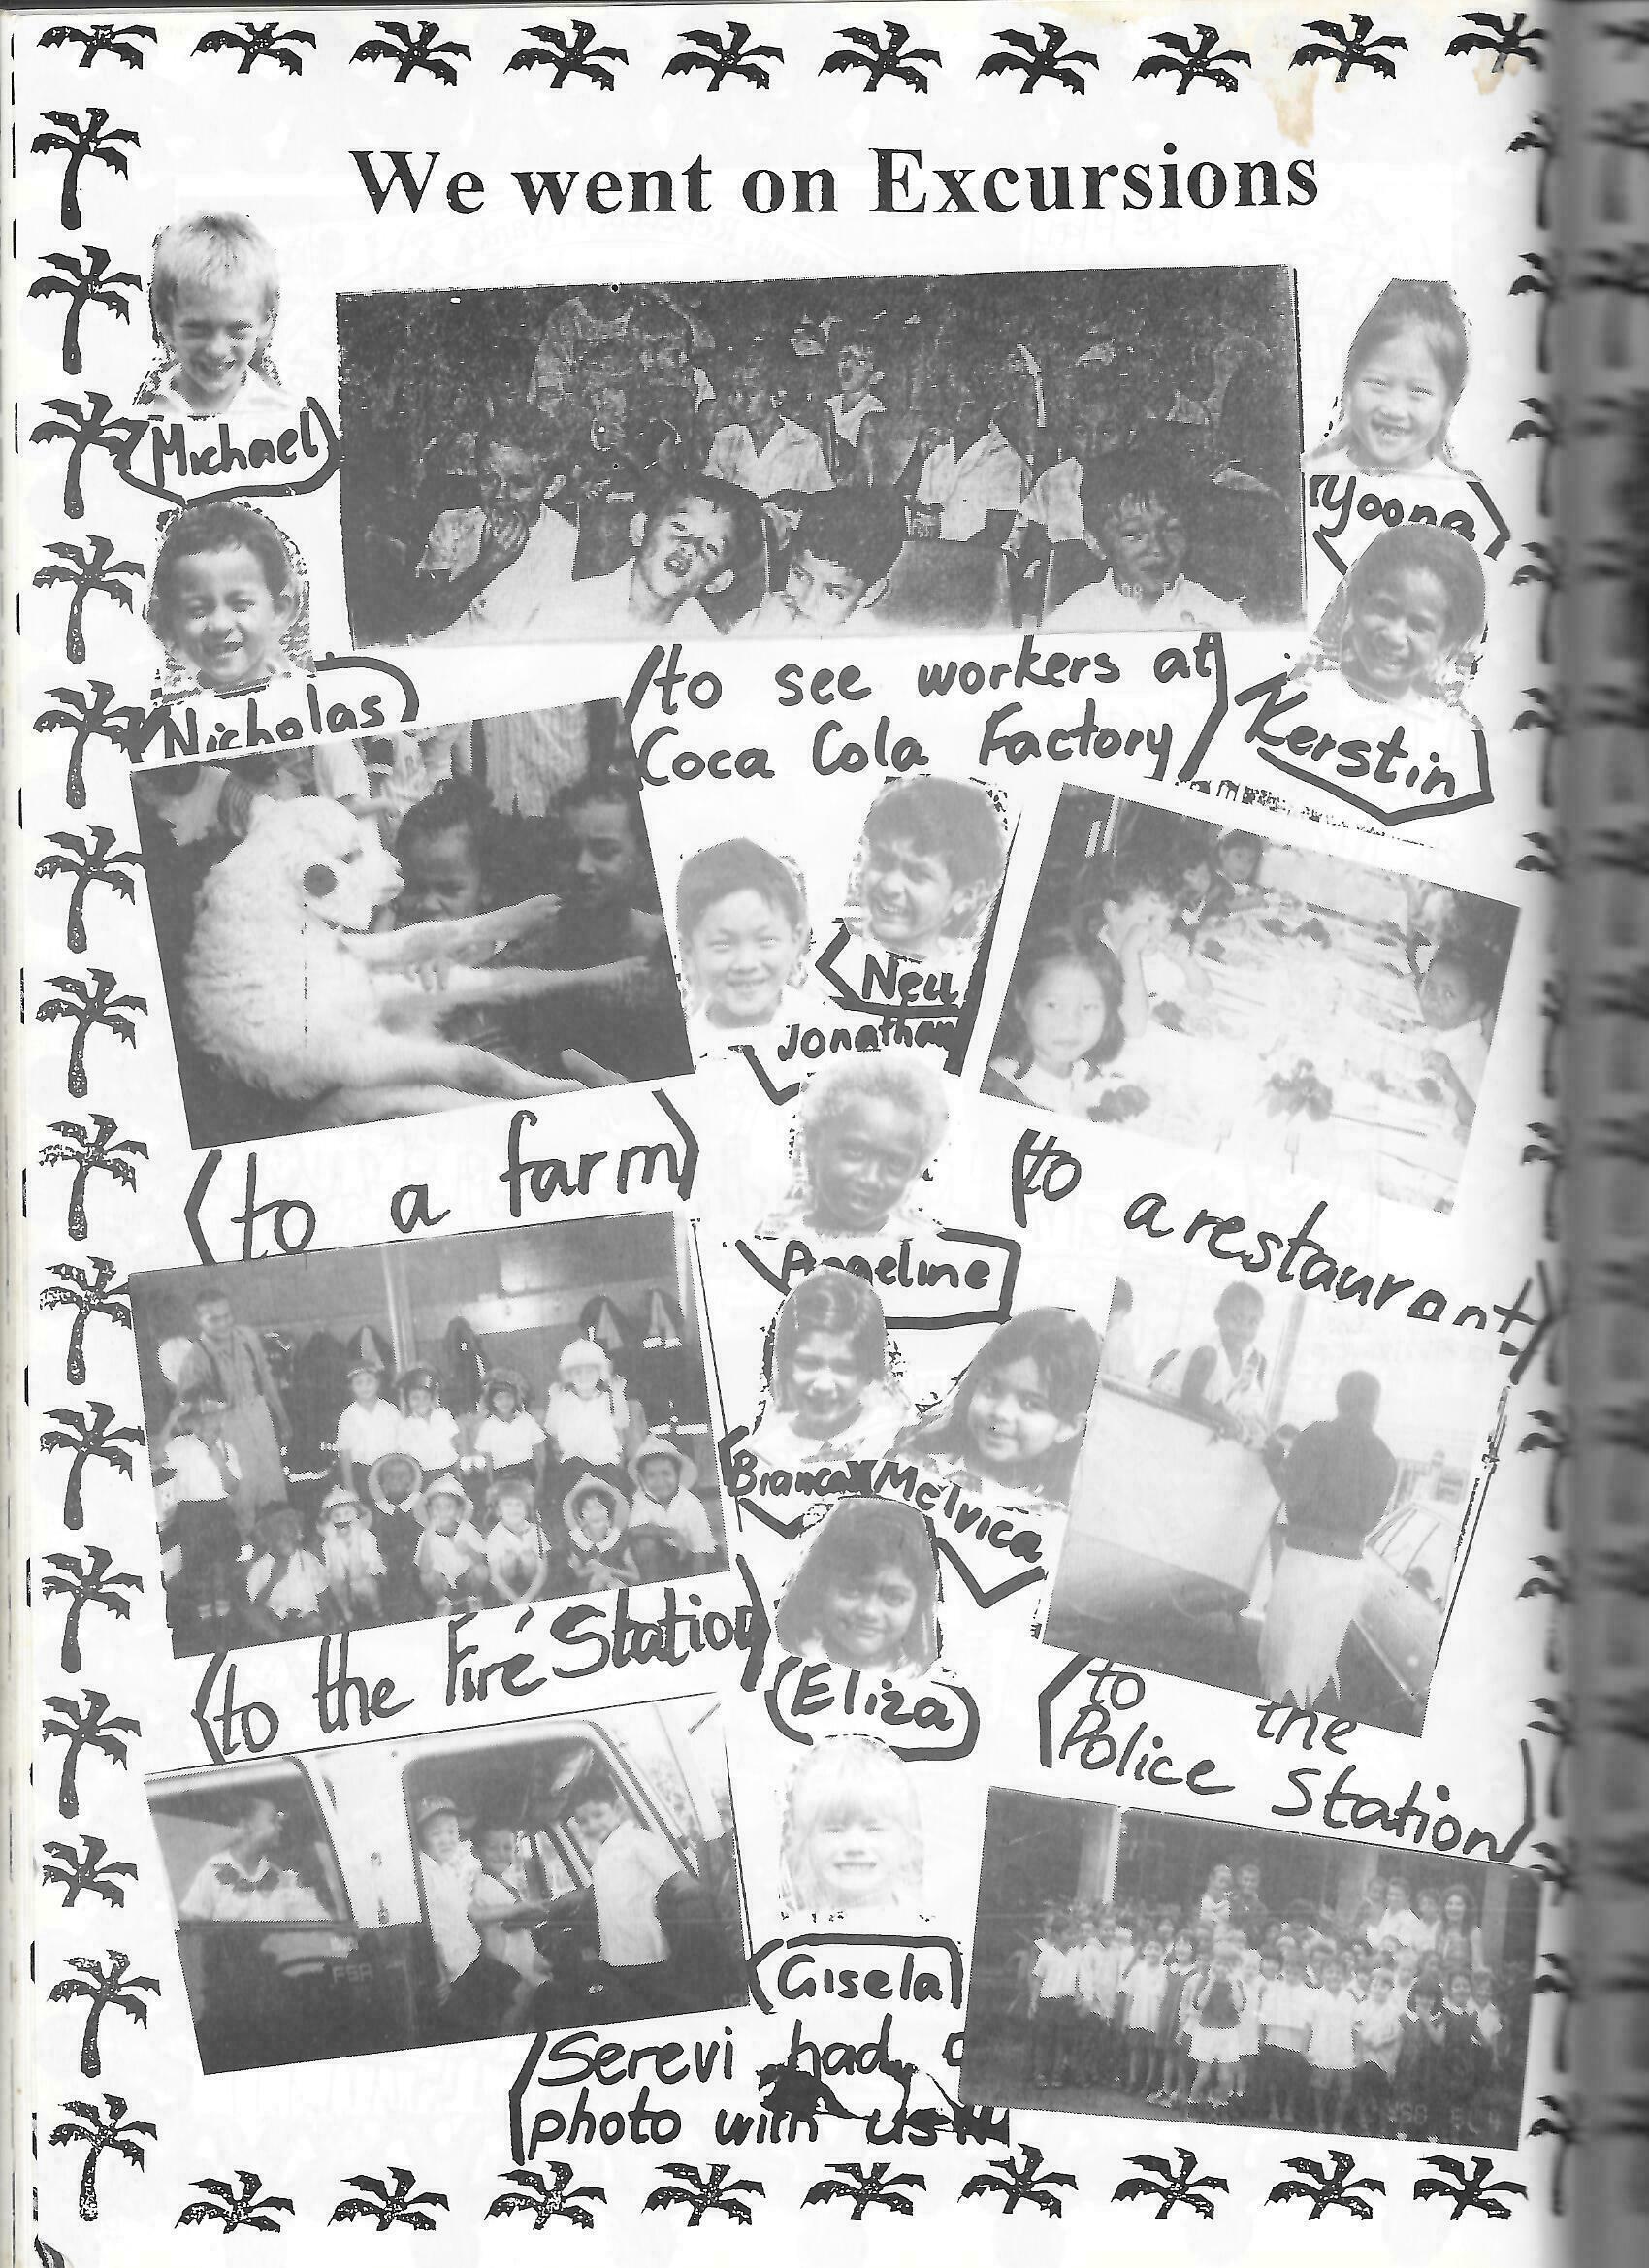 We went on Excursions
Michael
Yoona
Nicholas
to see workers at
Coca Cola Factory
Kerstin
Neil
Jonathan
to a farm
to a restaurant
Angeline
Bianca
Melvica
to the Fire Station
Eliza
to the
Police Station
Gisela
Serevi had a
photo with us